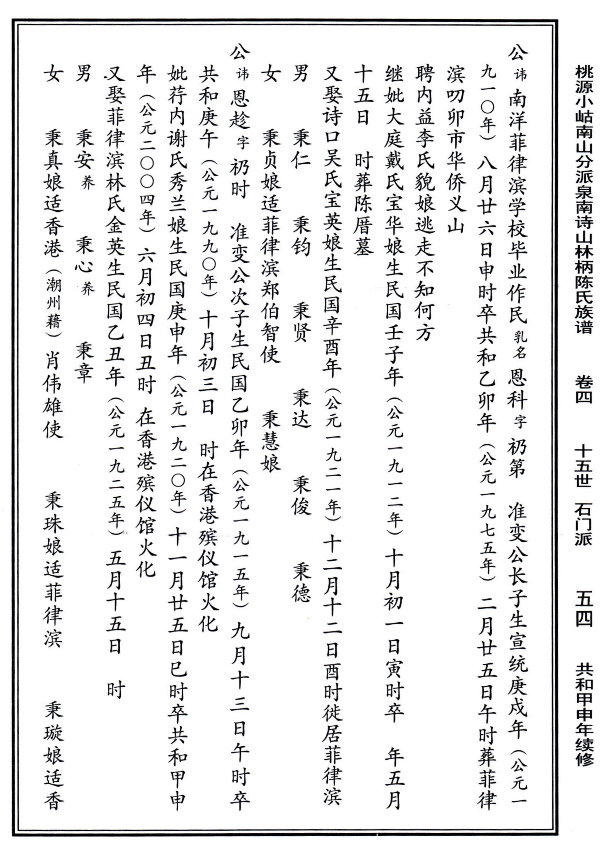 桃源小岵南山分派泉南诗山林柄陈氏族谱 卷四 十五世 石门派 五四 共和甲申年续修
公讳南洋菲律滨学校毕业作民乳名恩科字礽第 准变公长子生宣统庚戌年（公元一
九一〇年）八月廿六日申时卒共和乙卯年（公元一九七五年）二月廿五日午时葬菲律
滨叻卯市华侨义山
聘内益李氏貌娘逃走不知何方
继妣大庭戴氏宝华娘生民国壬子年（公元一九一二年）十月初一日寅时卒 年五月
十五日 时葬陈厝墓
又娶诗口吴氏宝英娘生民国辛酉年（公元一九二一年）十二月十二日酉时徙居菲律滨
男 秉仁 秉钧 秉贤 秉达 秉俊 秉德
女 秉贞娘适菲律滨郑伯智使 秉慧娘
公讳恩趁字礽时 准变公次子生民国乙卯年（公元一九一五年）九月十三日午时卒
共和庚午（公元一九九〇年）十月初三日 时在香港殡仪馆火化
妣荇内谢氏秀兰娘生民国庚申年（公元一九二〇年）十一月廿五日巳时卒共和甲申
年（公元二〇〇四年）六月初四日丑时 在香港殡仪馆火化
又娶菲律滨林氏金英生民国乙丑年（公元一九二五年）五月十五日 时
男 秉安养 秉心养 秉章
女 秉真娘适香港（潮州藉）肖伟雄使 秉珠娘适菲律滨 秉璇娘适香